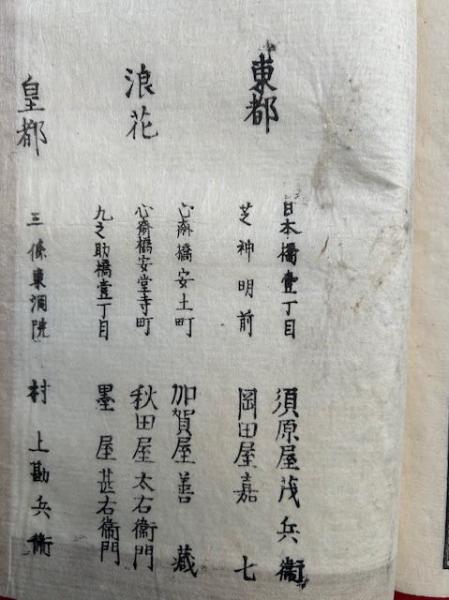 東都
日本橋壹丁目 須原屋茂兵衞
芝神明前 岡田屋嘉七
浪花
心斎橋安土町 加賀屋善藏
心斎橋安堂寺町 秋田屋太右衞門
九之助橋壹丁目 墨屋甚右衞門
皇都
三條東洞院 村上勘兵衞